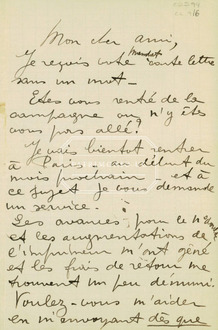 Mon cher ami,
mandat
Je reçois votre carte lettre
sans un mot —
Etes vous rentré de la
campagne ou n'y êtes
vous pas allé?
Je vais bientôt rentrer
à Paris au début du
mois prochain et à
ce sujet je vous demande
un service.
Les avances pour le n°
et les augmentations de
l'imprimeur m'ont gêné
et les frais de retour me
trouvent un peu démuni.
Voulez-vous m'aider
en m'envoyant dès que